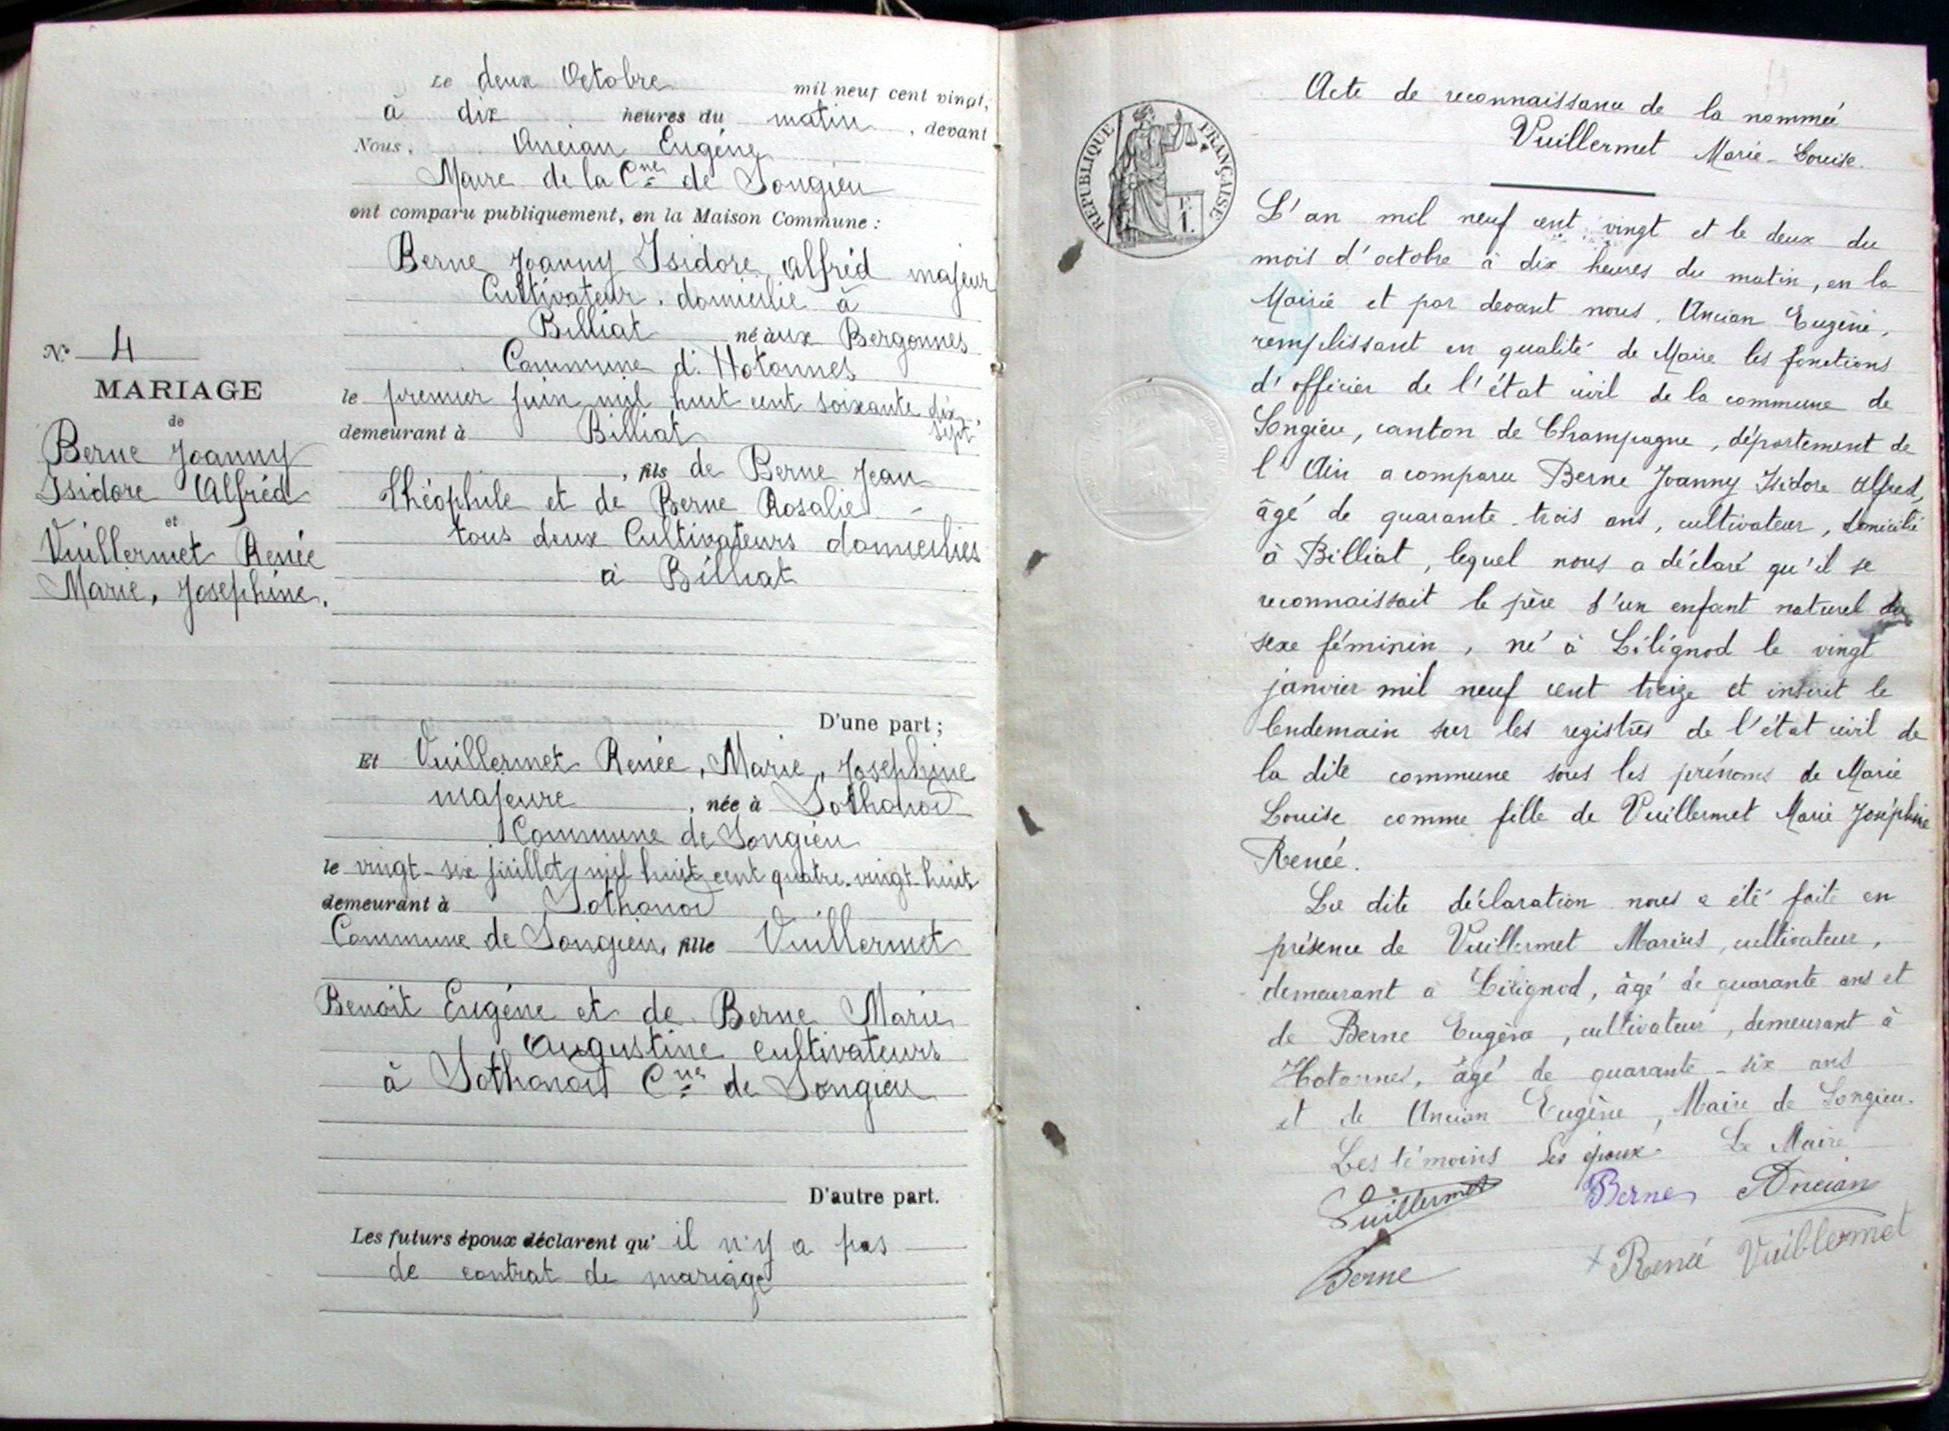 Le deux Octobre mil neuf cent vingt,
à dix heures du matin, devant
Nous, Ancian Eugène
Maire de la Cne de Songieu
ont comparu publiquement, en la Maison Commune :
Berne Joanny Isidore Alfréd majeur
Cultivateur. domicilié à
Billiat né aux Bergonnes
Commune d: Hotonnes
le premier juin mil huit cent soixante dix
sept
demeurant à Billiat
, fils de Berne Jean
Théophile et de Berne Rosalie
tous deux Cultivateurs domiciliés
à Billiat
N° 4
MARIAGE
de
Berne Joanny
Isidore Alfréd
et
Vuillermet Renée
Marie, Josephine.
D'une part ;
Et Vuillermet Renée, Marie, Josephine
majeure, née à Sothonod
Commune de Songieu
le vingt-six juillet mil huit cent quatre-vingt-huit
demeurant à Sothonod
Commune de Songieu, fille Vuillermet
Benoit Eugéne et de Berne Marie
Augustine cultivateurs
à Sothonod Cne de Songieu
D'autre part.
Les futurs époux déclarent qu' il n'y a pas
de contrat de mariage
Acte de reconnaissance de la nommée
Vuillermet Marie-Louise.
RÉPUBLIQUE FRANÇAISE
L'an mil neuf cent vingt et le deux du
mois d'octobre à dix heures du matin, en la
Mairie et par devant nous, Ancian Eugène,
remplissant en qualité de Maire les fonctions
d'officier de l'état civil de la commune de
Songieu, canton de Champagne, département de
l'Ain a comparu Berne Joanny Isidore Alfred,
âgé de quarante-trois ans, cultivateur, domicilié
à Billiat, lequel nous a déclaré qu'il se
reconnaissait le père d'un enfant naturel du
sexe féminin, né à Lilignod le vingt
janvier mil neuf cent treize et inscrit le
lendemain sur les registres de l'état civil de
la dite commune sous les prénoms de Marie
Louise comme fille de Vuillermet Marie Joséphine
Renée.
La dite déclaration nous a été faite en
présence de Vuillermet Marius, cultivateur,
demeurant à Lilignod, âgé de quarante ans et
de Berne Eugène, cultivateur, demeurant à
Hotonnes, âgé de quarante-six ans
et de Ancian Eugène, Maire de Songieu.
Les témoins Les époux Le Maire
Vuillermet Berne Ancian
Berne Renée Vuillermet